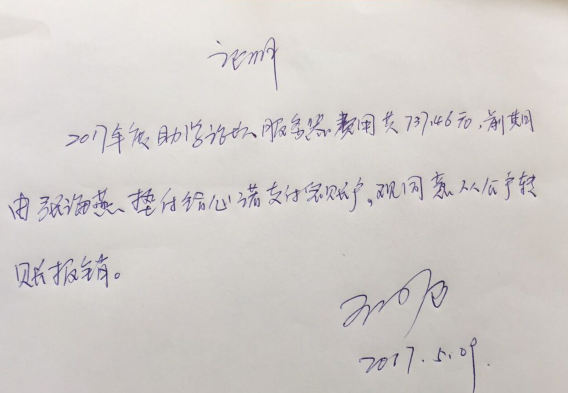 证明
2017年度助学论坛服务器费用共737.46元,前期
由张海燕垫付给心诺支付宝账户。现同意从公户转
账报销。
2017.5.09